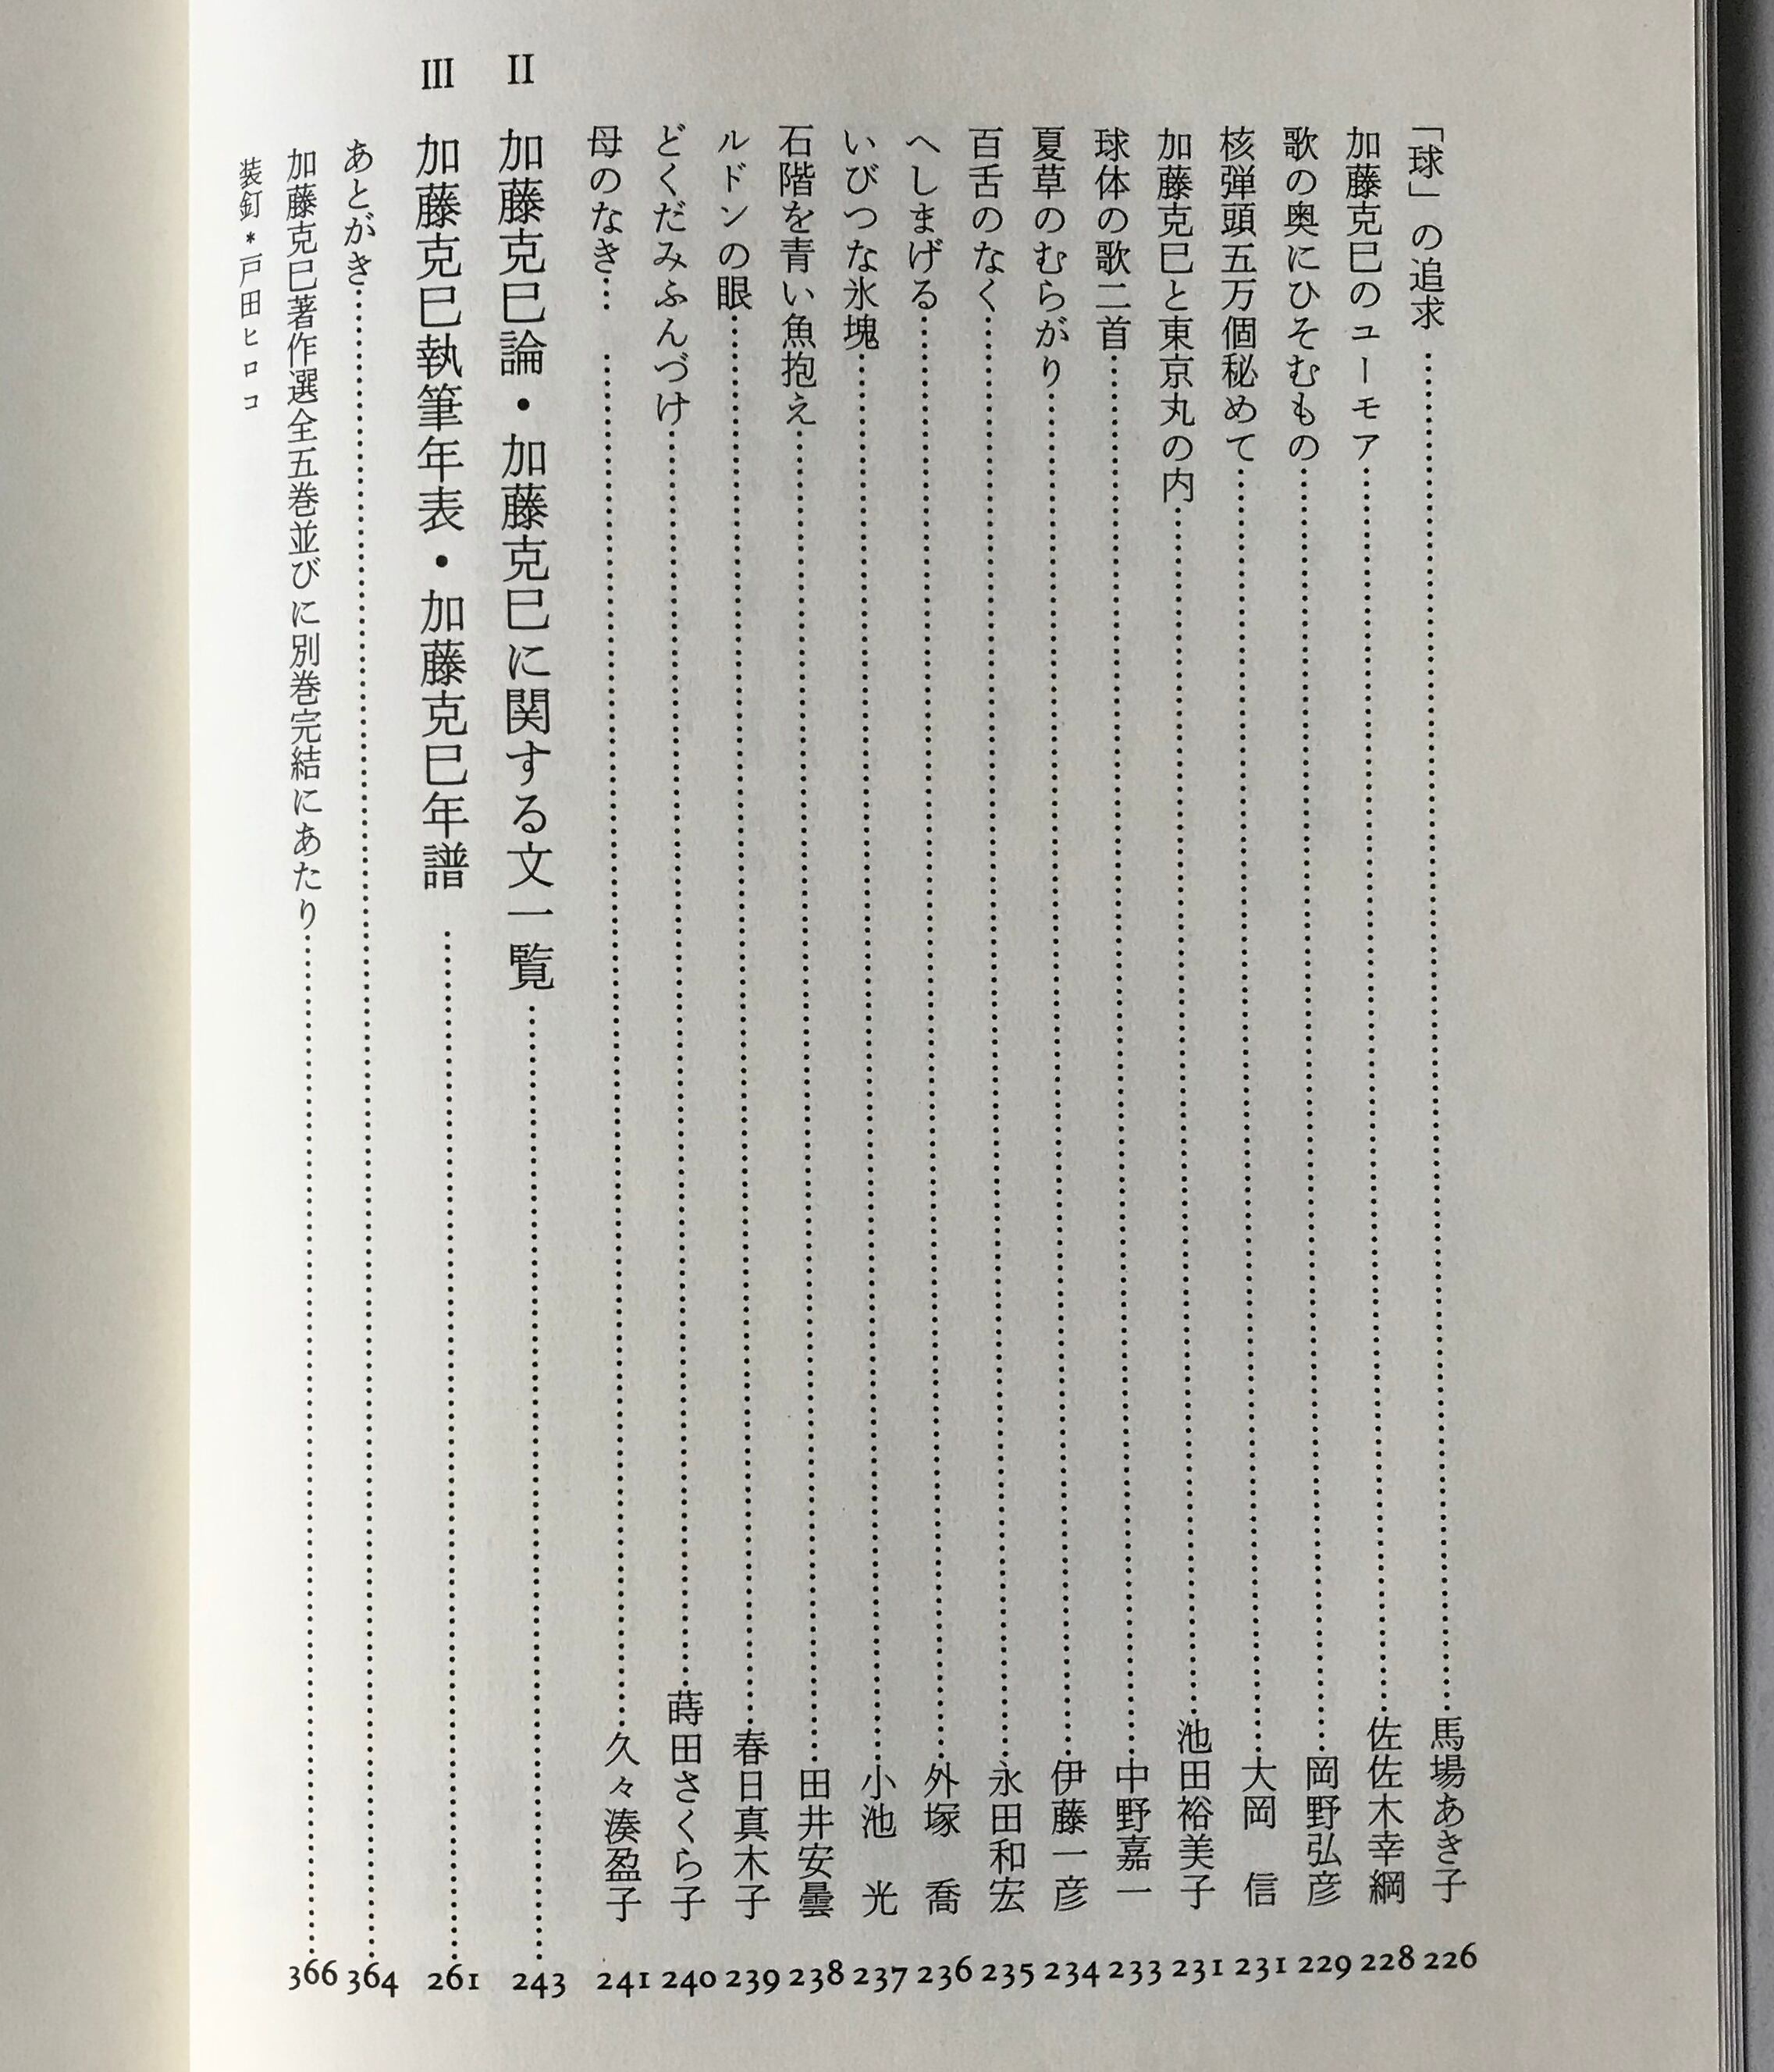 「球」の追求……馬場あき子 226
加藤克巳のユーモア……佐佐木幸綱 228
歌の奥にひそむもの……岡野弘彦 229
核弾頭五万個秘めて……大岡　信 231
加藤克巳と東京丸の内……池田裕美子 231
球体の歌二首……中野嘉一 233
夏草のむらがり……伊藤一彦 234
百舌のなく……永田和宏 235
へしまげる……外塚　喬 236
いびつな氷塊……小池　光 237
石階を青い魚抱え……田井安曇 238
ルドンの眼……春日真木子 239
どくだみふんづけ……蒔田さくら子 240
母のなき…　……久々湊盈子 241
II　加藤克巳論・加藤克巳に関する文一覧……243
III　加藤克巳執筆年表・加藤克巳年譜……261
あとがき……364
加藤克巳著作選全五巻並びに別巻完結にあたり……366
装釘＊戸田ヒロコ